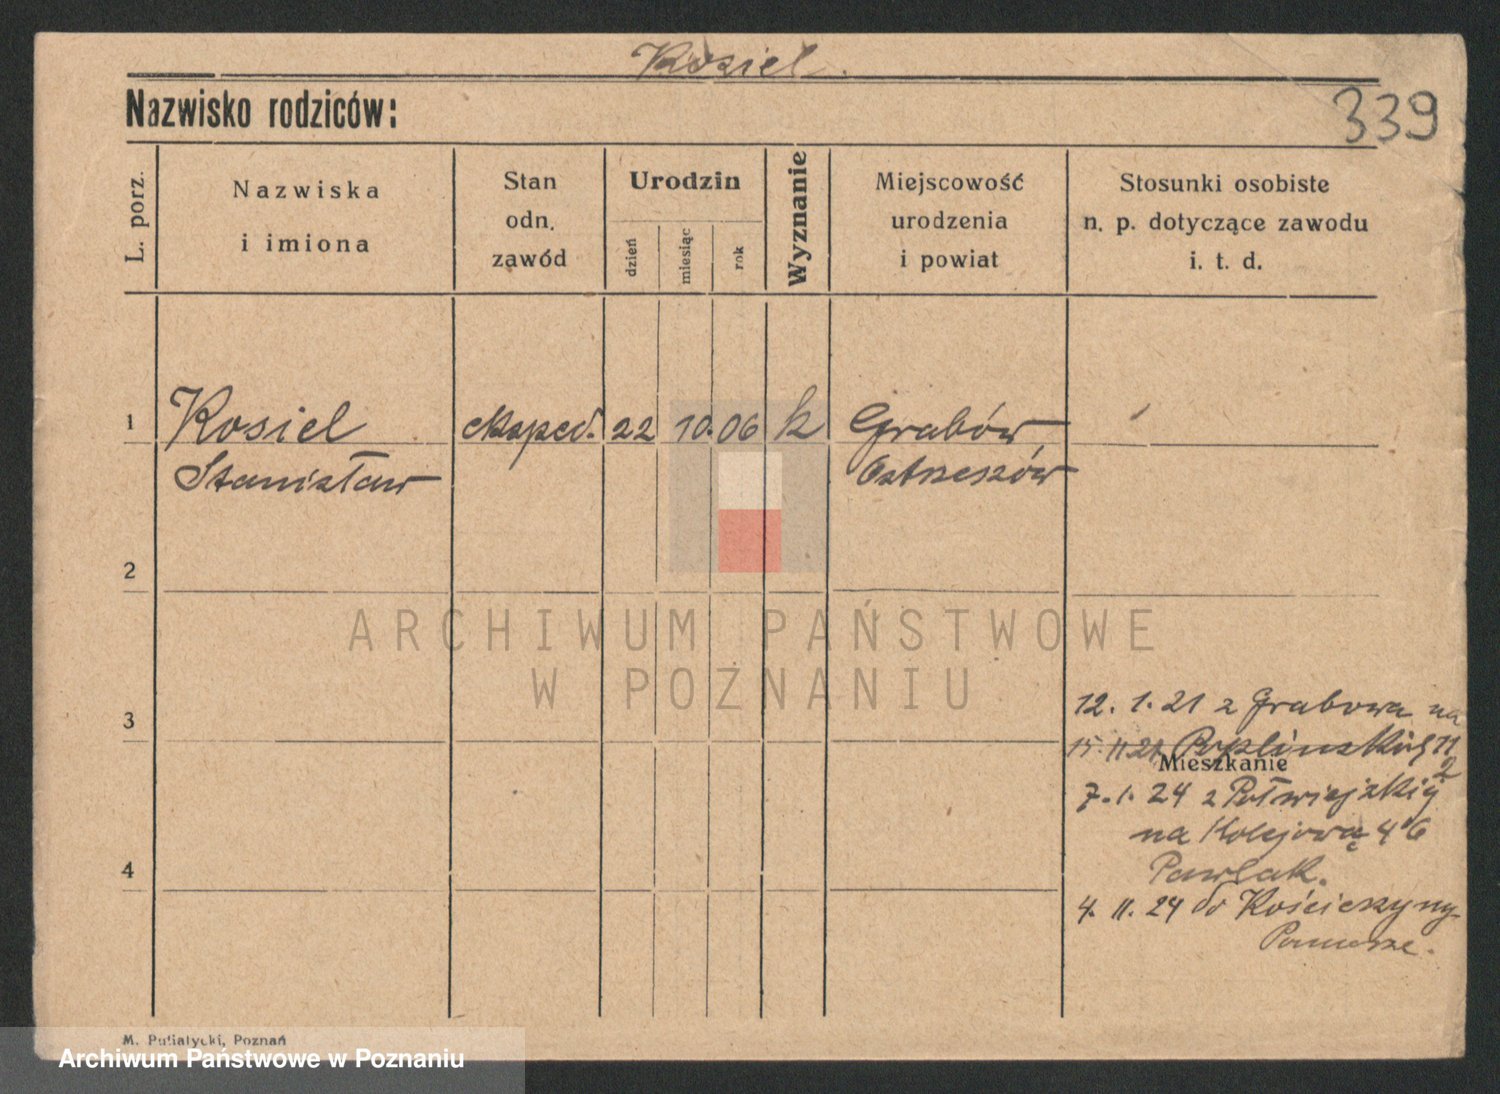 Kosiel.
Nazwisko rodziców:
339
L. porz.
Nazwiska
i imiona
Stan
odn.
zawód
Urodzin
dzień
miesiąc
rok
Wyznanie
Miejscowość
urodzenia
i powiat
Stosunki osobiste
n. p. dotyczące zawodu
i. t. d.
1
Kosiel
Stanisław
eksped.
22
10.
06
k
Grabów
Ostrzeszów
2
ARCHIWUM PAŃSTWOWE
W POZNANIU
3
12. 1. 21 z Grabowa na
15. 11 21
Mieszkanie
7. 1. 24 z Półwiejskiej
na Kolejową 46
Pawlak.
4
4. 11. 24 do Kościerzyny
Pomorze.
M. Putiatycki, Poznań
Archiwum Państwowe w Poznaniu